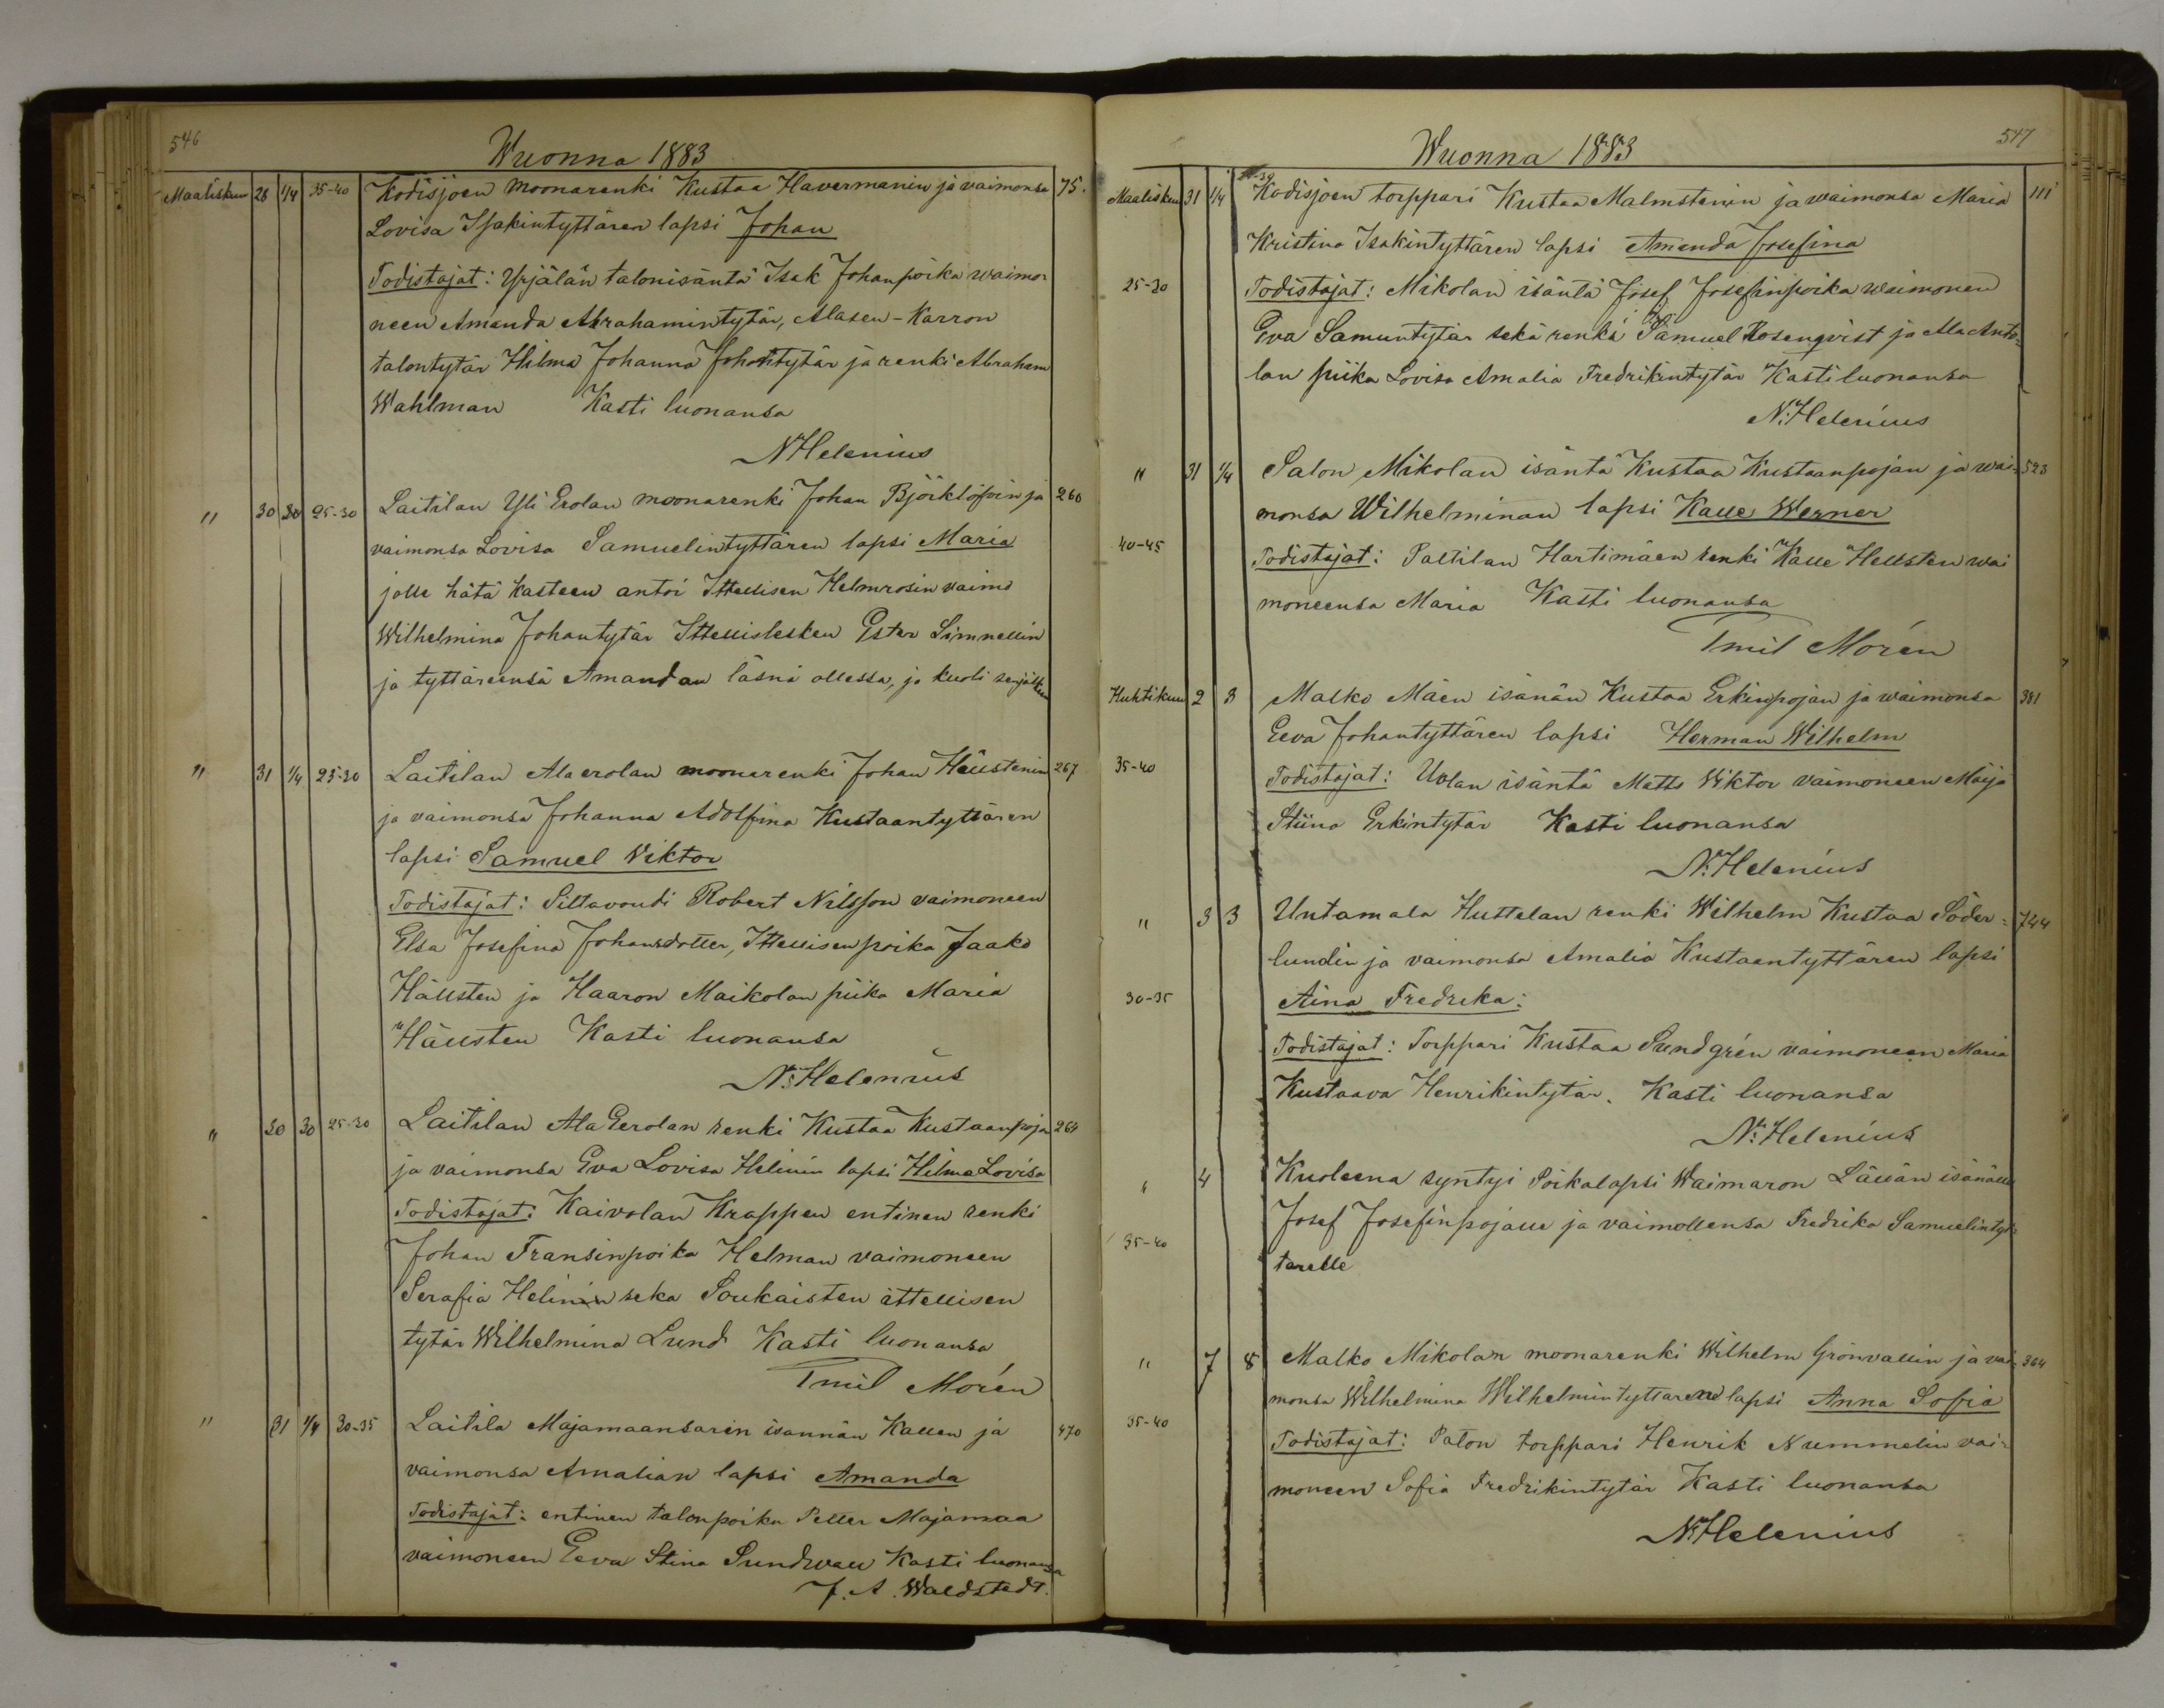 546
Wuonna 1883
Maaliskuu 28 1/4 35-40 Kodisjoen moonarenki Kustaa Havermanin ja vaimonsa 75.
Lovisa Isakintyttären lapsi Johan
Todistajat: Yrjälän talonisäntä Isak Johanpoika waimo-
neen Amanda Abrahamintytär, Alasen-Karron
talontytär Hilma Johanna Johantytär ja renki Abraham
Wahlman Kasti luonansa
N Helenius
" 30 30 25-30 Laitilan Yli Erolan moonarenki Johan Björklöfvin ja 260
vaimonsa Lovisa Samuelintyttären lapsi Maria
jolle hätä kasteen antoi Ittellisen Helmrosin vaimo
Wilhelmina Johantytär Ittellislesken Ester Limnellin
ja tyttäreensä Amandan läsnä ollessa, ja kuoli senjälkeen
" 31 1/4 25-30 Laitilan Alaerolan moonarenki Johan Hällstenin 267
ja vaimonsa Johanna Adolfina Kustaantyttären
lapsi Samuel Viktor
Todistajat: Siltavoudi Robert Nilsson vaimoneen
Elsa Josefina Johansdotter, Ittellisen poika Jaako
Hällsten ja Haaron Maikolan piika Maria
Hällsten Kasti luonansa
N: Helenius
" 30 30 25-30 Laitilan Ala Eerolan renki Kustaa Kustaanpoja 261
ja vaimonsa Eva Lovisa Helinin lapsi Hilma Lovisa
Todistajat: Kaivolan Krappen entinen renki
Johan Fransinpoika Helman vaimoneen
Serafia Helinin seka Soukaisten ittellisen
tytär Wilhelmina Lund Kasti luonansa
Emil Morén
" 31 1/4 30-35 Laitila Majamaansarin isannän Kallen ja 470
vaimonsa Amalian lapsi Amanda
Todistajat: entinen talonpoika Petter Majamaa
vaimoneen Eeva Stina Sundwall Kasti luonansa
J. A. Waldstedt.
547
Wuonna 1883
Maaliskuu 31 1/4 Kodisjoen torppari Kustaa Malmstenin ja waimonsa Maria 111
Kristina Isakintyttären lapsi Amanda Josefina
25-30 Todistajat: Mikolan isäntä Josef Josefinpoika waimoneen
Eva Samuntytär sekä renki Samuel Rosenqvist ja Ala Anto-
lan piika Lovisa Amalia Fredrikintytär Kasti luonansa
N. Helenius
" 31 1/4 Salon Mikolan isäntä Kustaa Kustaanpojan ja wai- 523
monsa Wilhelminan lapsi Kalle Werner
40-45 Todistajat: Paltilan Hartimäen renki Kalle Hellsten wai
moneensa Maria Kasti luonansa
Emil Morén
Huhtikuu 2 3 Malko Mäen isänän Kustaa Erkinpojan ja waimonsa 381
Eeva Johantyttären lapsi Herman Wilhelm
35-40 Todistajat: Uolan isäntä Matts Viktor vaimoneen Maija
Stiina Erkintytär Kasti luonansa
N. Helenius
" 3 3 Untamala Huttelan renki Wilhelm Kustaa Söder- 744
lundin ja vaimonsa Amalia Kustaantyttären lapsi
30-35 Aina Fredrika:
Todistajat: Torppari Kustaa Sundgrén vaimoneen Maria
Kustaava Henrikintytär. Kasti luonansa
N: Helenius
" 4 Kuoleena syntyi Poikalapsi Waimaron Lällän isänälle
Josef Josefinpojalle ja vaimollensa Fredrika Samuelintyt-
35-40 tarelle
" 7 8 Malko Mikolan moonarenki Wilhelm Grönvallin ja vai- 364
monsa Wilhelmina Wilhelmintyttaren lapsi Anna Sofia
35-40 Todistajat: Palon torppari Henrik Nummelin vai-
moneen Sofia Fredrikintytär Kasti luonansa
N Helenius